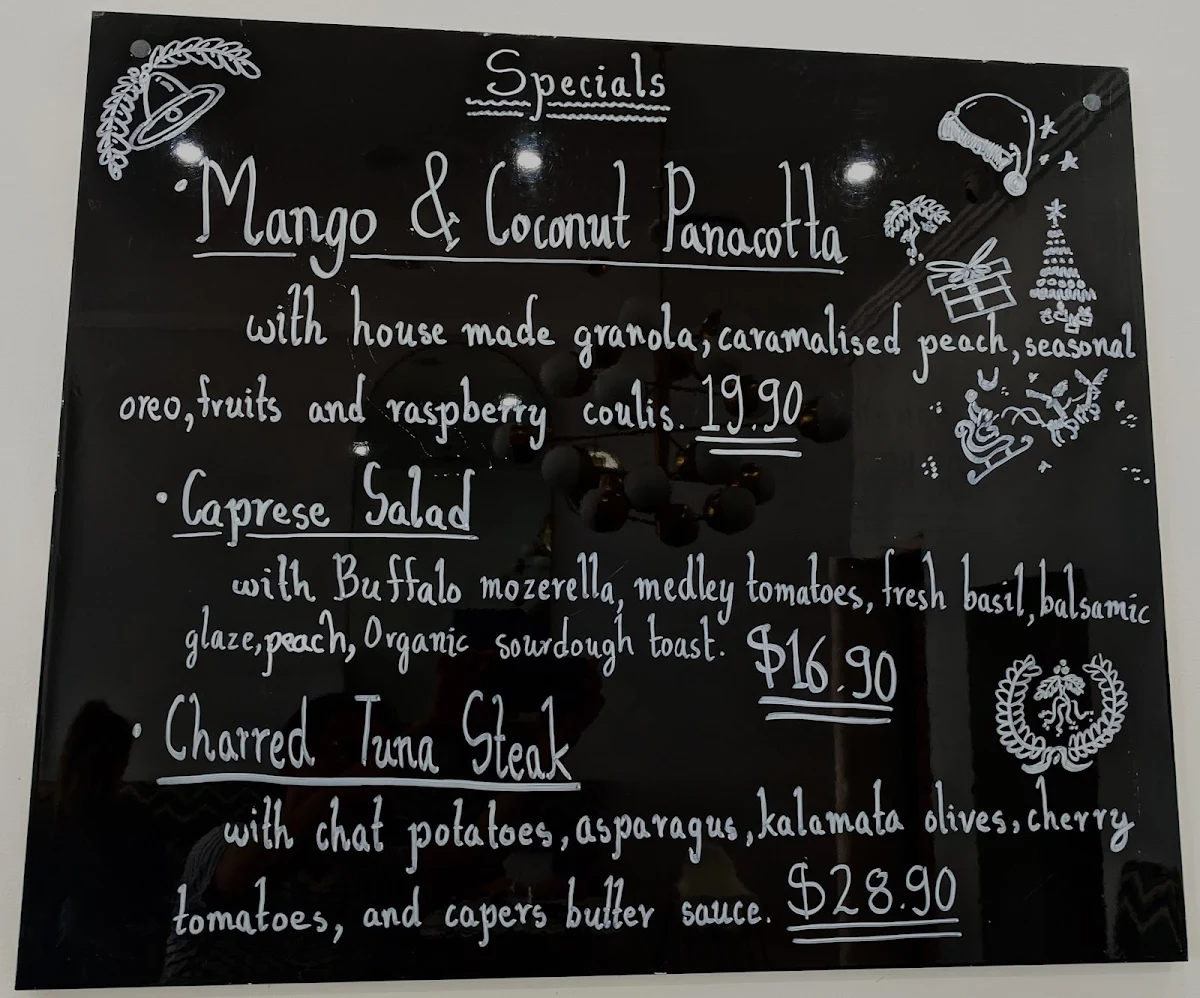 Specials
· Mango & Coconut Panacotta
with house made granola, caramalised peach, seasonal
oreo, fruits and raspberry coulis. 19.90
· Caprese Salad
with Buffalo mozerella, medley tomatoes, fresh basil, balsamic
glaze, peach, Organic sourdough toast. $16.90
· Charred Tuna Steak
with chat potatoes, asparagus, kalamata olives, cherry
tomatoes, and capers butter sauce. $28.90